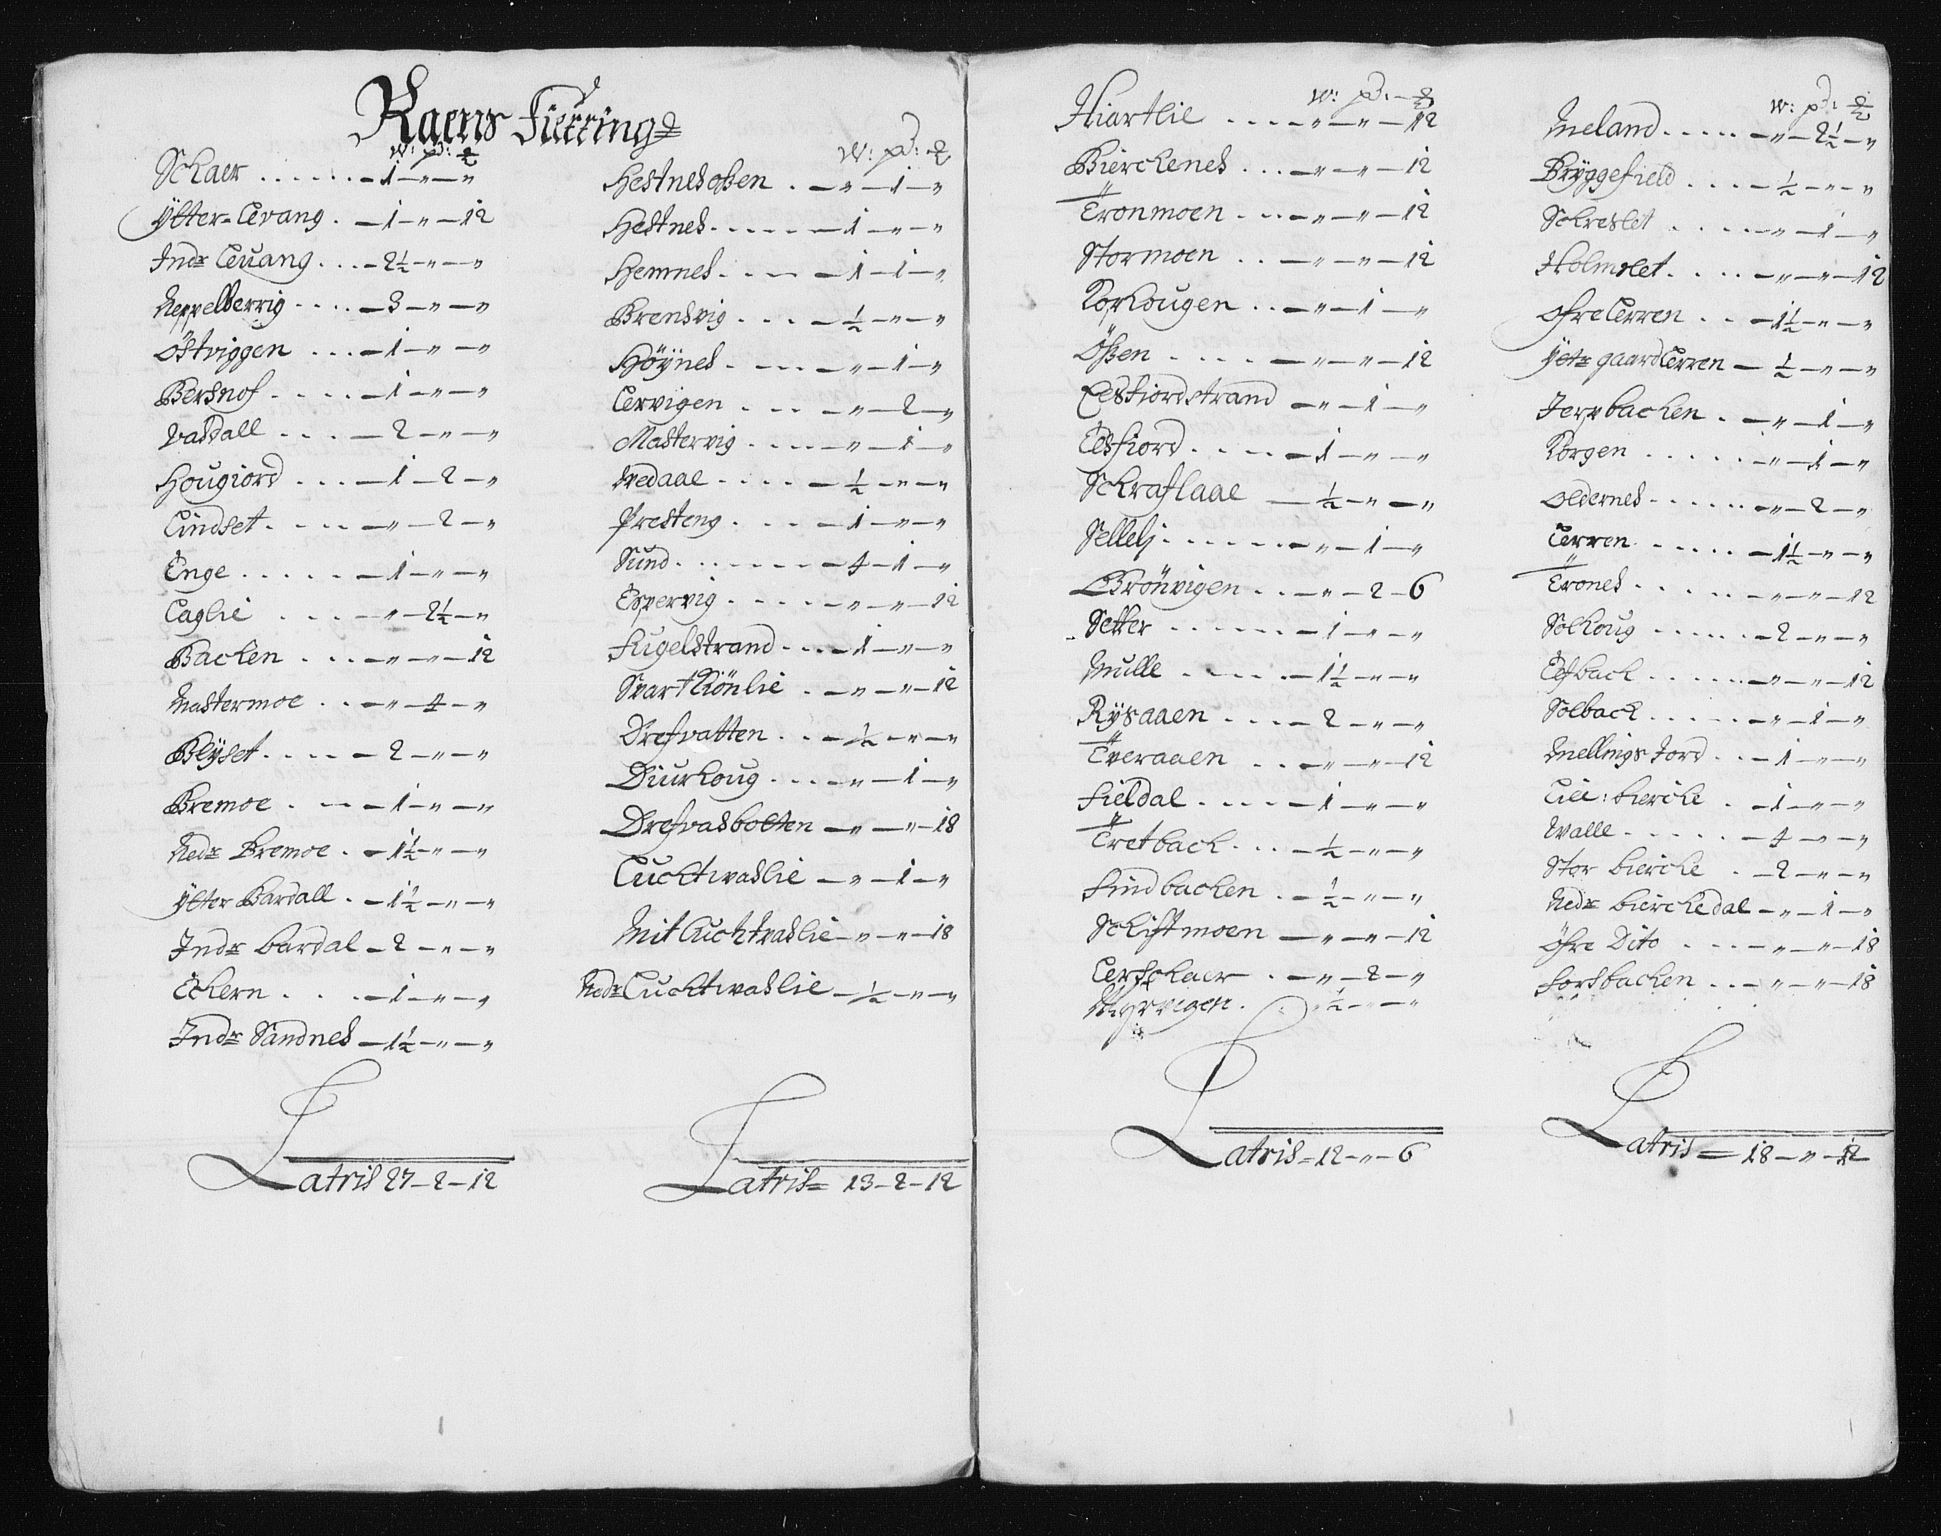 Raens Fierring
w: pd: lb
Schaer . . . . . . . — 1 — „ — „
Ÿtter=Levang . — 1 — „ — 12
Indr Leuang . . . — 2½ — „ — „
Neppelberrig . . . . — 3 — „ — „
Östviggen . . . — 1 — „ — „
Bersnof . . . . — 1 — „ — „
Vassdall . . . — 2 — „ — „
Hougiord . . . — 1 — 2 — „
Lindset . . . . — „ — 2 — „
Enge . . . . . — 1 — „ — „
Laglie . . . . — „ — 2½ — „
Bachen . . . — „ — „ — 12
Nastermoe . . . — „ — 4 — „
Blÿset . . . . — 2 — „ — „
Bremoe . . . — 1 — „ — „
Nedr Bremoe . — 1½ — „ — „
Ÿtter Bardall . — 1½ — „ — „
Indr bardal — 2 — „ — „
Echern . . . — 1 — „ — „
Indr Sandnes — 1½ — „ — „
Latris 27 — 2 — 12
w: pd: lb
Hestnesossen . — „ — 1 — „
Hestnes . . . . . — 1 — „ — „
Hemnes . . — — 1 — 1 — „
Brensvig . . . — ½ — „ — „
Höÿnes . . . . — „ — 1 — „
Lervigen . . . — „ — 2 — „
Mastervig . . . . — „ — 1 — „
Wedaal . . . . — ½ — „ — „
Presteng . . . — 1 — „ — „
Sund . . . . . . — 4 — 1 — „
Espervig . . . . — „ — „ — 12
Fugelstrand . . . — 1 — „ — „
Svartkiönlie . — „ — „ — 12
Drefvatten . . . — ½ — „ — „
Diurhoug . . . . — „ — 1 — „
Drefvasbotten — „ — „ — 18
Luchtwaslie — „ — 1 — „
Mitluchtvaslie — „ — „ — 18
Nedr Luchtwaslie — ½ — „ — „
Latris = 13 — 2 — 12
w: pd: — lb
Hiartlie . . . . — „ — „ — 12
Bierchenes . . . — „ — „ — 12
Tronmoen . . . — „ — „ — 12
Stormoen . . — „ — „ — 12
Korhougen . . — „ — 1 — „
Ossen . . . . . — „ — „ — 12
Elsfiordstrand — „ — 1 — „
Elsfiord . . . . — 1 — „ — „
Schraflaae — ½ — „ — „
Sellelj . . . . . . — „ — 1 — „
Brönvigen . . . — „ — 2 — 6
Setter . . . . . . — 1 — „ — „
Mulle . . . . . — 1½ — „ — „
Rÿsaaen . . . . — 2 — „ — „
Tveraaen . . . — „ — „ — 12
Fieldal . . . . . — 1 — „ — „
Tretbach . . . — ½ — „ — „
Findbachen . — ½ — „ — „
Schistmoen — „ — „ — 12
Lerschaer . — „ — 2 — „
Mÿrvigen . . ½ — „ — „
Latris = 12 — „ — 6
w: pd: lb
Meland . . . . . — „ — 2½ — „
Brÿggefield . . . . — ½ — „ — „
Schreslet . . . . — „ — 1 — „
Holmslet . . . . — „ — „ — 12
Ofre Lerren . . — 1½ — „ — „
Ÿtr gaard Lerren — ½ — „ — „
Jerpbachen . — „ — 1 — „
Korgen . . . . . — „ — 1 — „
Oldernes . . . . . — „ — 2 — „
Lerren . . . . . — 1½ — „ — „
Trones . . . . . — „ — „ — 12
Solhoug . . . . . — 2 — „ — „
Elfbach . . . . . — „ — „ — 12
Solbach . . . . . — „ — 1 — „
Mellingsjord . . — 1 — „ — „
Lill: bierche . — 1 — „ — „
Walle . . . . . — 4 — „ — „
Stor bierche . — 2 — „ — „
Nedr bierchedal — „ — 1 — „
Öfre Dito . . . — „ — „ — 18
Forsbachen . . — „ — „ — 18
Latris = 18 — „ — 12